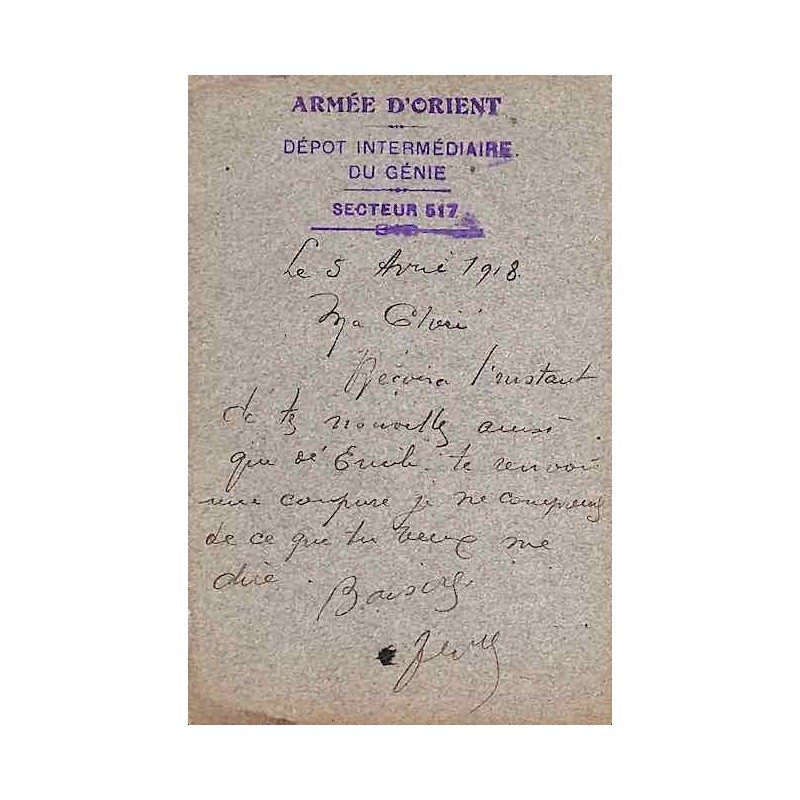 ARMÉE D'ORIENT
DÉPOT INTERMÉDIAIRE
DU GÉNIE
SECTEUR 517
Le 5 Avril 1918.
Ma Chéri
l'instant
de tes nouvelles ainsi
que de Emile te renvoi
une coupure je ne comprend
de ce que tu veux me
dire.
Baisers